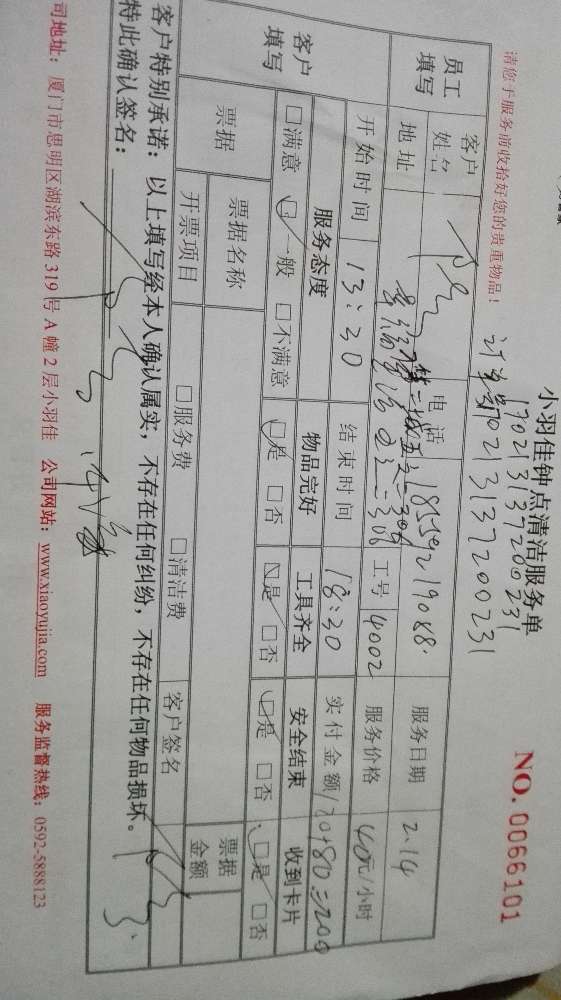 小羽佳钟点清洁服务单
NO. 0066101
170213137200231
170213137200231
请您于服务前收拾好您的贵重物品！
员工填写 客户姓名 电话 18559219088 服务日期 2.14
地址 工号 4002 服务价格 40元/小时
开始时间 13:30 结束时间 18:30 实付金额 120+80=200
客户填写 服务态度 物品完好 工具齐全 安全结束 收到卡片
□满意 □一般 □不满意 □是 □否 □是 □否 □是 □否 □是 □否
票据 票据名称 票据金额
开票项目 □服务费 □清洁费 客户签名
客户特别承诺：以上填写经本人确认属实，不存在任何纠纷，不存在任何物品损坏。
特此确认签名：
司地址：厦门市思明区湖滨东路 319 号 A 幢 2 层小羽佳 公司网站：www.xiaoyujia.com 服务监督热线：0592-5888123